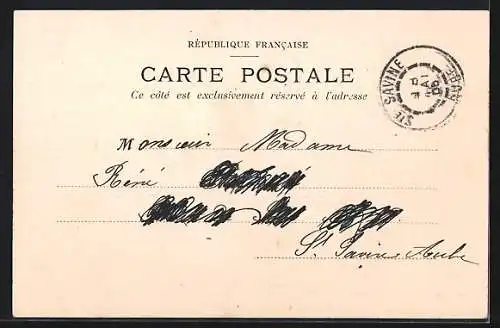 RÉPUBLIQUE FRANÇAISE
CARTE POSTALE
Ce côté est exclusivement réservé à l'adresse
STE SAVINE
AUBE
MAI
Monsieur Madame
Réné
St Savine Aube